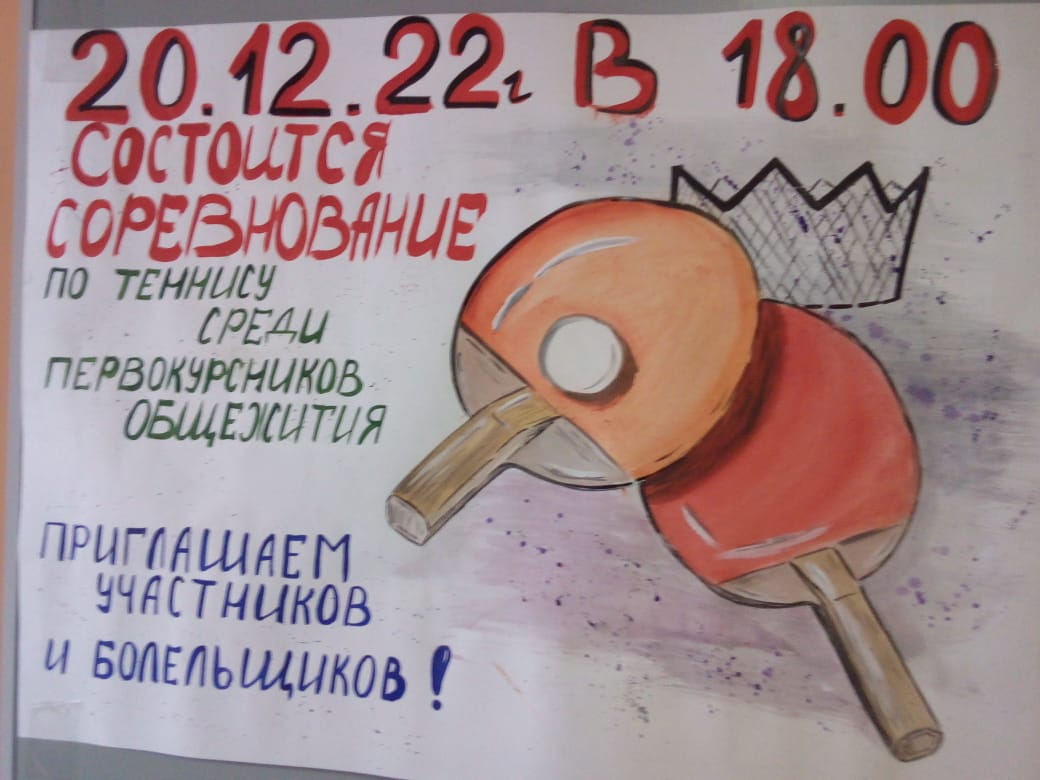 20.12.22г В 18.00
СОСТОИТСЯ
СОРЕВНОВАНИЕ
ПО ТЕННИСУ
СРЕДИ
ПЕРВОКУРСНИКОВ
ОБЩЕЖИТИЯ
ПРИГЛАШАЕМ
УЧАСТНИКОВ
И БОЛЕЛЬЩИКОВ!